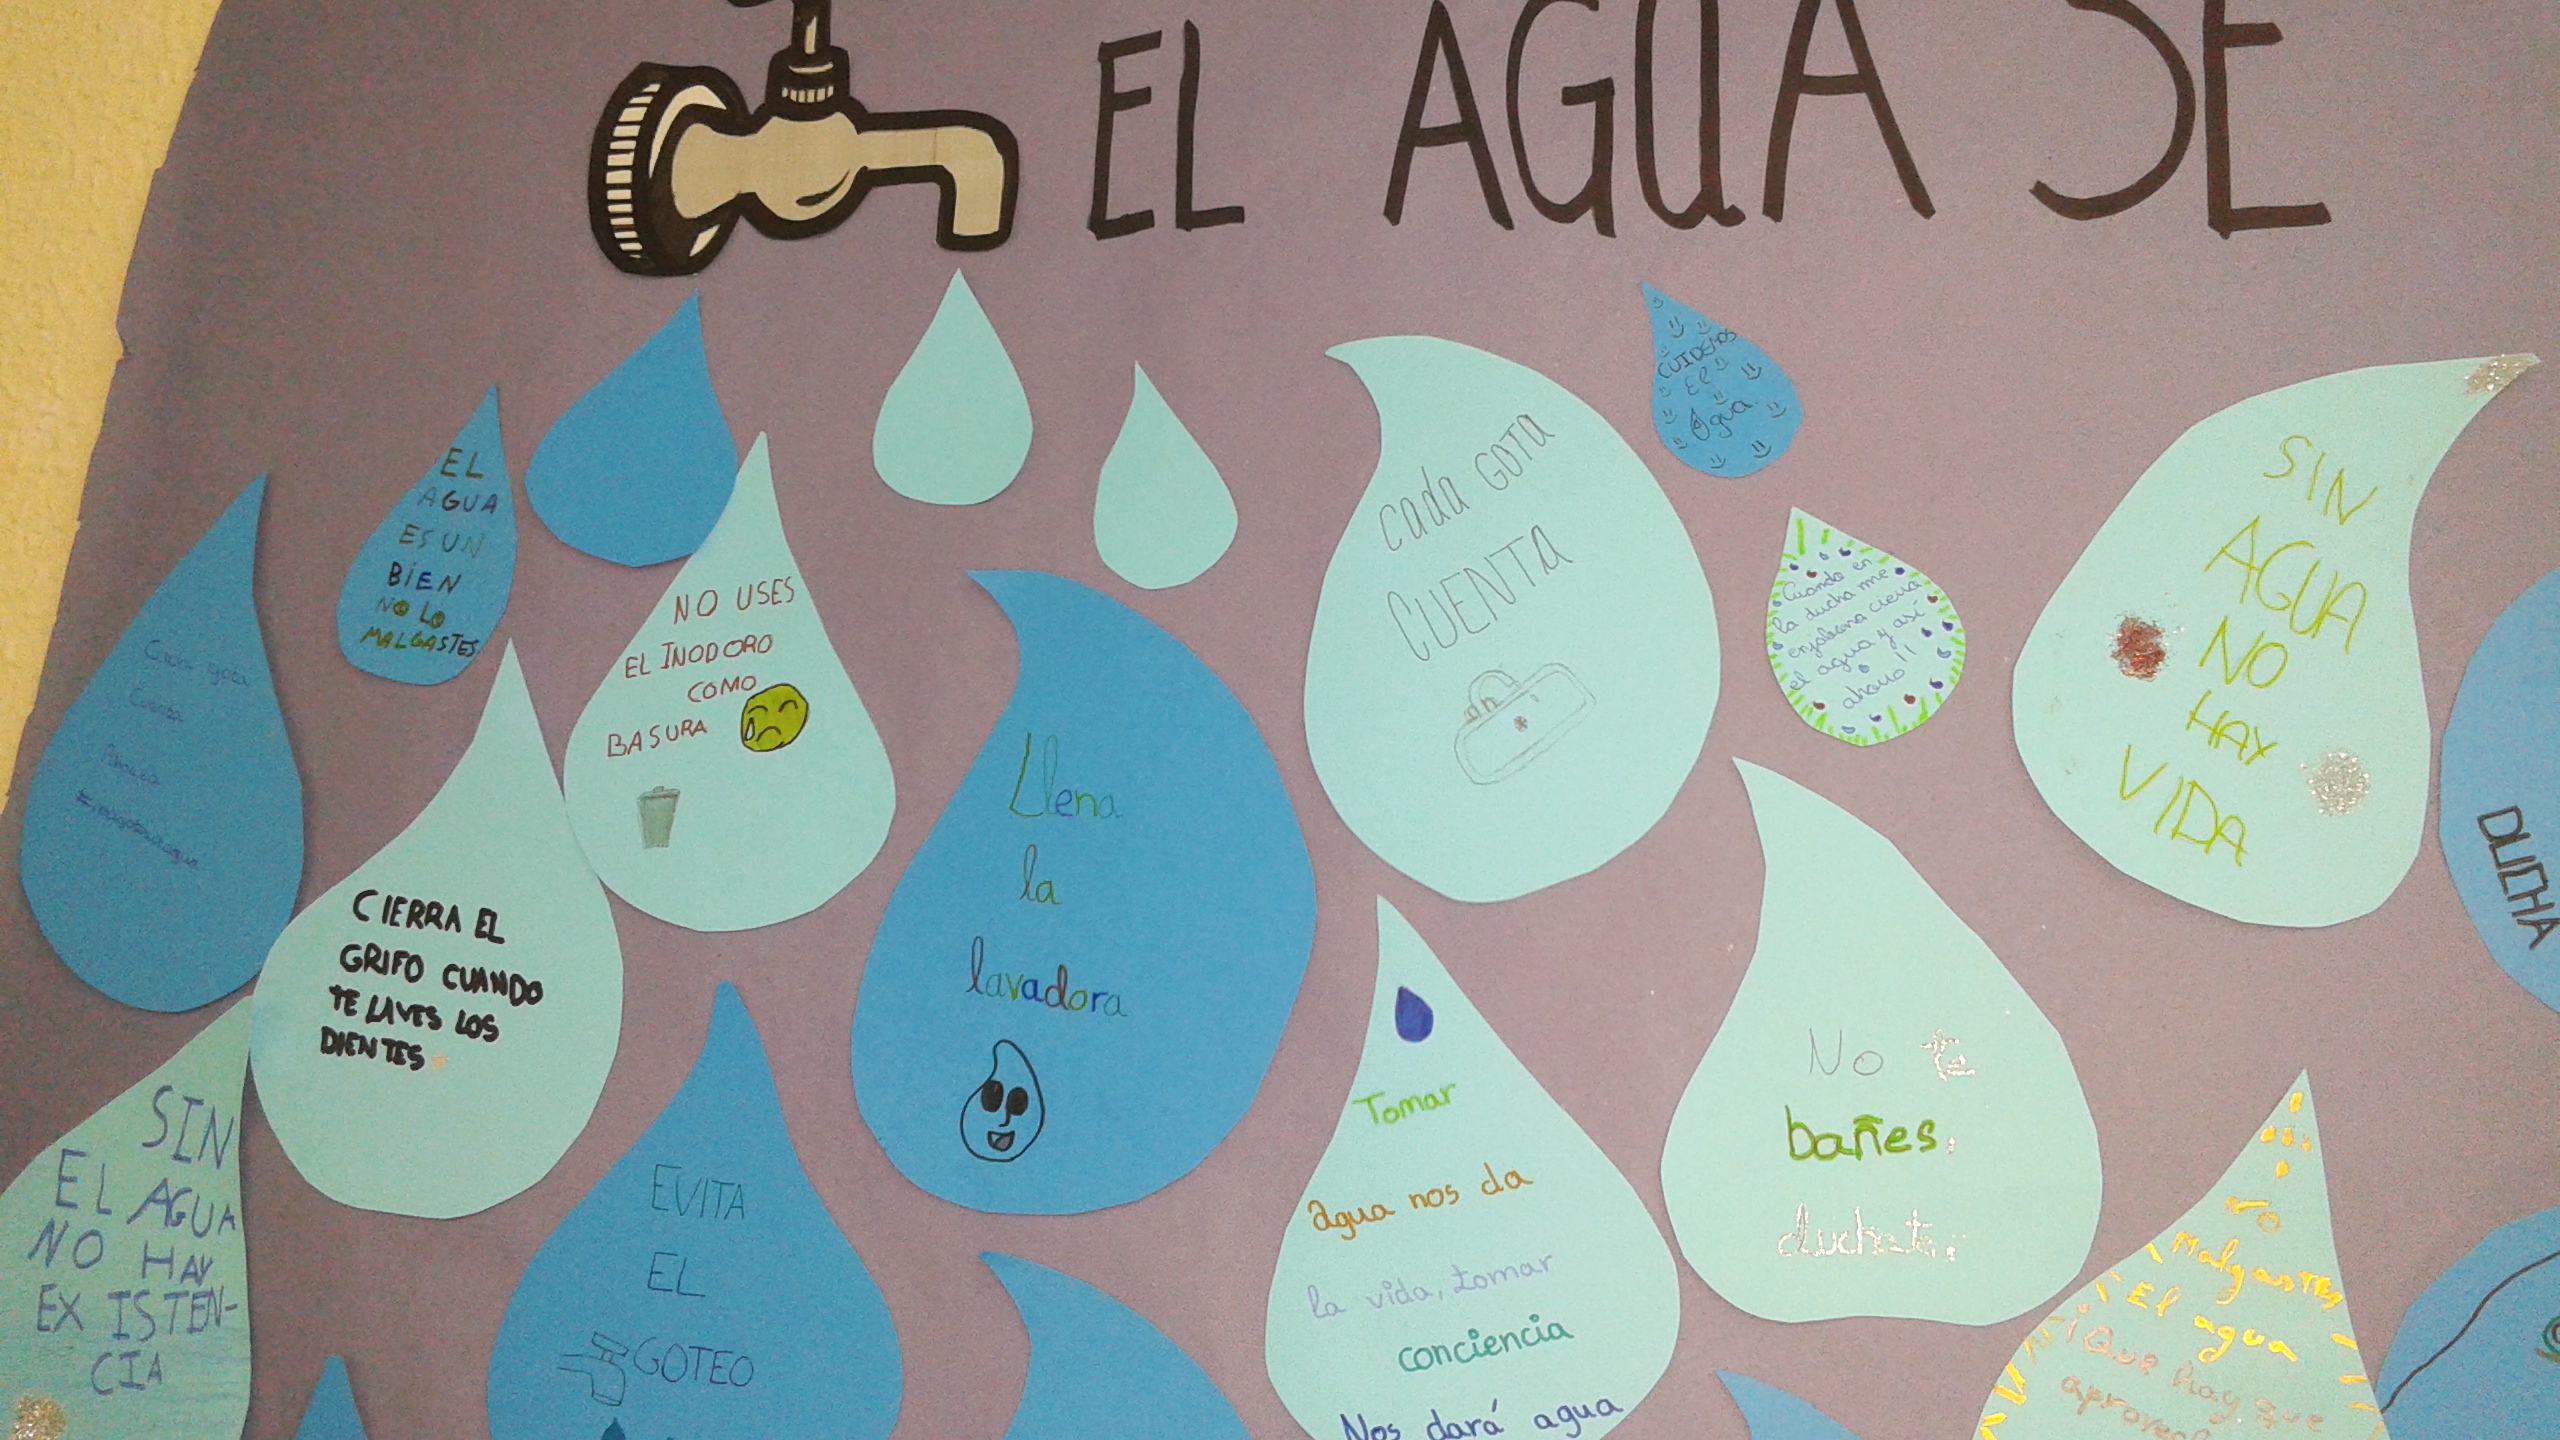 EL AGUA SE
EL
AGUA
ES UN
BIEN
NO LO
MALGASTES
CUIDEMOS
El
Agua.
cada GOTA
CUENTA
SIN
AGUA
NO
HAY
VIDA
NO USES
EL INODORO
COMO
BASURA
Cuando en
la ducha me
enjabono cierra
el agua y así
ahorro!!
Cada gota
Cuenta
Ahorra
Llena
la
lavadora
DUCHA
CIERRA EL
GRIFO CUANDO
TE LAVES LOS
DIENTES
No te
bañes,
duchate.
Tomar
agua nos da
la vida, tomar
conciencia
Nos dará agua
SIN
EL AGUA
NO HAY
EXISTEN-
CIA
EVITA
EL
GOTEO
no
Malgastes
El agua
¡Que hay que